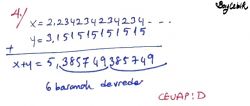 4.)
x = 2,234234234234 ...
y = 3,151515151515
+
x+y = 5,385749385749
6 basamak devreder
CEVAP: D